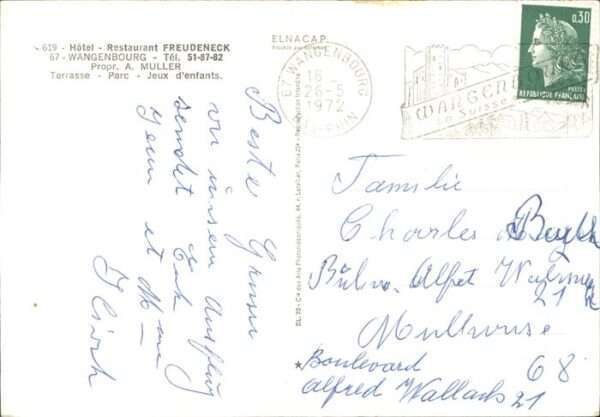 619 - Hôtel - Restaurant FREUDENECK
67 - WANGENBOURG - Tél. 51-87-82
Propr. A. MULLER
Terrasse - Parc - Jeux d'enfants.
ELNACAP
67 WANGENBOURG
16
26-5
1972
BAS-RHIN
WANGENBOURG
La Suisse
0,30
POSTES
REPUBLIQUE FRANÇAISE
Beste Grüsse
von unserm Ausflug
sendet Euch
et Mme
Familie
Charles
Alfred
21
Mulhouse
68
*Boulevard
Alfred Wallach 21